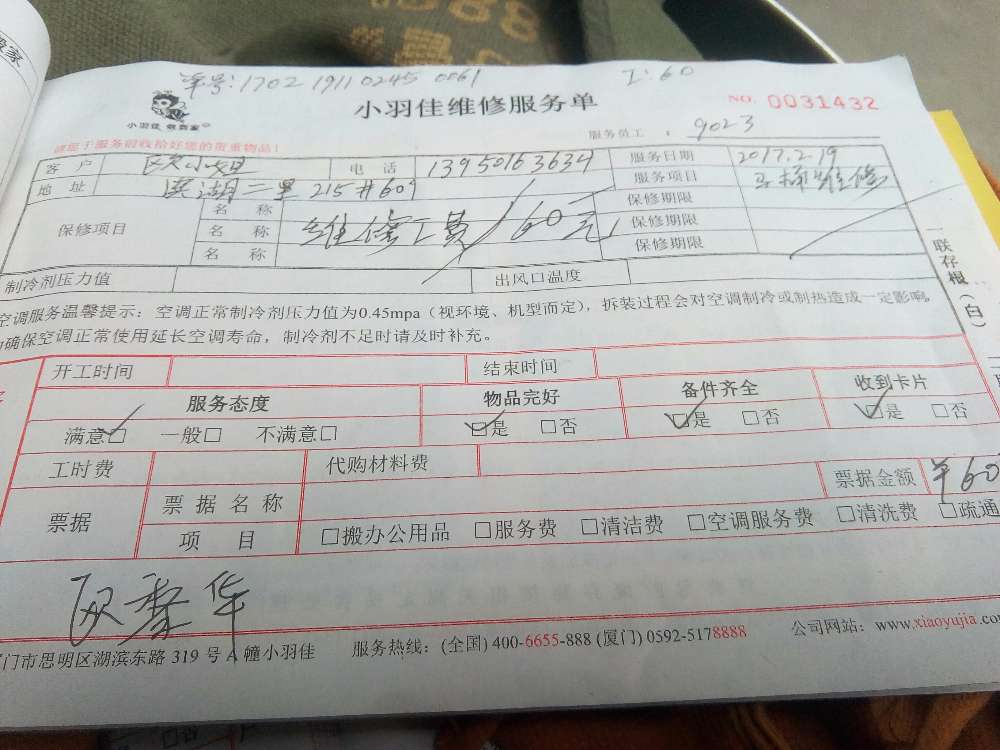 单号:1702 1911 0245 0061 工:60
小羽佳维修服务单 NO. 0031432
小羽佳 做到家
服务员工: 9023
请您于服务前收拾好您的贵重物品!
客 户 欧小姐 电 话 13950163634 服务日期 2017.2.19
地 址 滨湖二里215#609 服务项目 维修
保修项目 名 称 保修期限
名 称 维修工费/60元 保修期限
名 称 保修期限
制冷剂压力值 出风口温度
空调服务温馨提示:空调正常制冷剂压力值为0.45mpa(视环境、机型而定),拆装过程会对空调制冷或制热造成一定影响,
确保空调正常使用延长空调寿命,制冷剂不足时请及时补充。
一联存根(白)
开工时间 结束时间
服务态度 物品完好 备件齐全 收到卡片
满意☑ 一般□ 不满意□ ☑是 □否 ☑是 □否 ☑是 □否
工时费 代购材料费
票据 票据名称 票据金额 ¥60
项 目 □搬办公用品 □服务费 □清洁费 □空调服务费 □清洗费 □疏通
门市思明区湖滨东路 319 号 A 幢小羽佳 服务热线:(全国) 400-6655-888 (厦门) 0592-5178888 公司网站:www.xiaoyujia.com